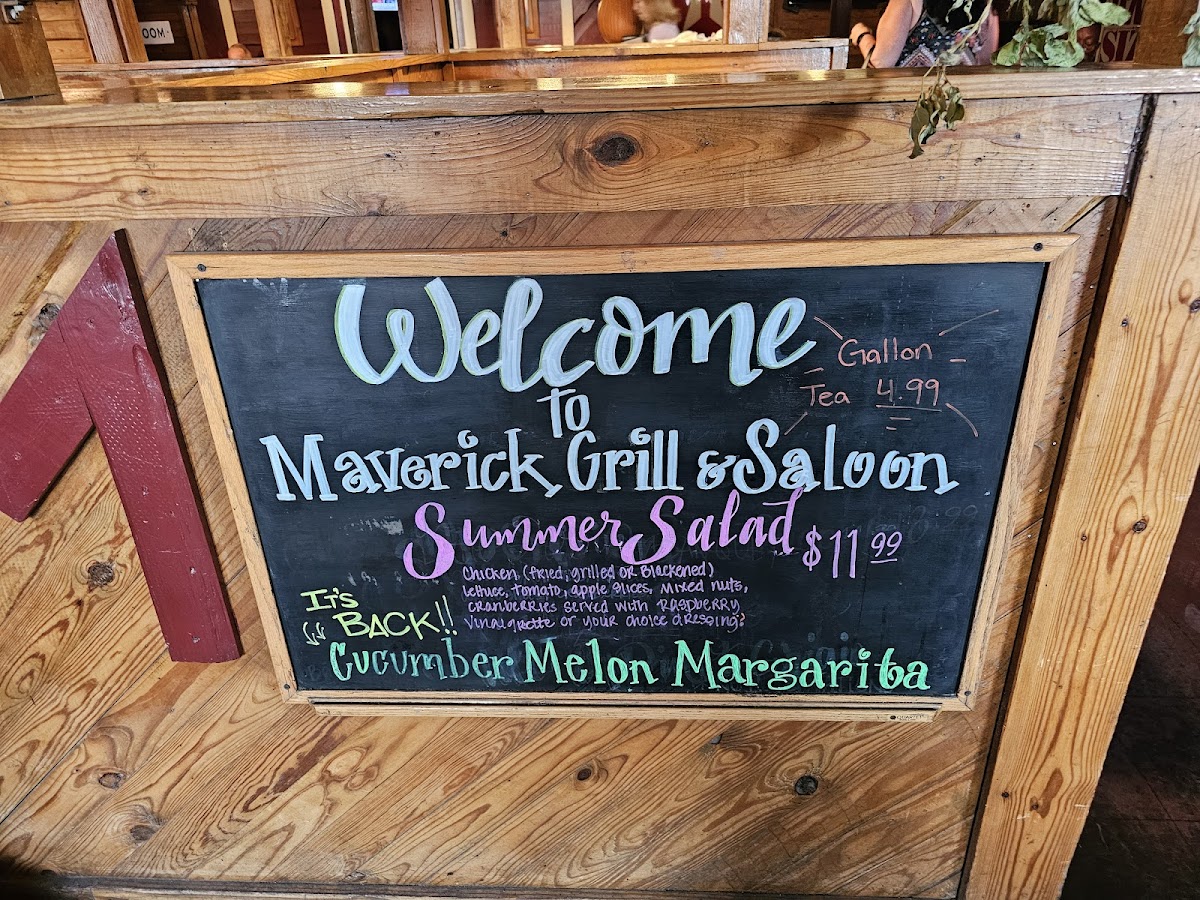 OOM
Welcome
Gallon
Tea 4.99
to
Maverick Grill & Saloon
Summer Salad $11.99
Chicken (fried, grilled or Blackened)
lettuce, tomato, apple slices, mixed nuts,
cranberries served with raspberry
Vinaigrette or your choice dressing!
It's
Back!!
Cucumber Melon Margarita
QUARTET